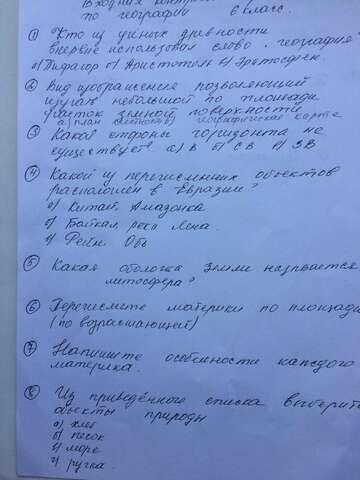 Входная контр
по географии 6 класс.
① Кто из ученых древности
впервые использовал слово "география"
а) Пифагор б) Аристотель в) Эратосфен.
② Вид изображения позволяющий
изучать небольшой по площади
участок земной поверхности
а) план местности б) географическая карта
③ Какой стороны горизонта не
существует? а) В б) СВ в) ЗВ
④ Какой из перечисленных объектов
расположен в Евразии?
а) Китай, Амазонка
б) Байкал, река Лена.
в) Рейн, Обь
⑤ Какая оболочка Земли называется
литосфера?
⑥ Перечислите материки по площади
(по возрастающей)
⑦ Напишите особенности каждого
материка.
⑧ Из приведённого списка выберите
объекты природы
а) хлеб
б) песок
в) море
г) ручка.